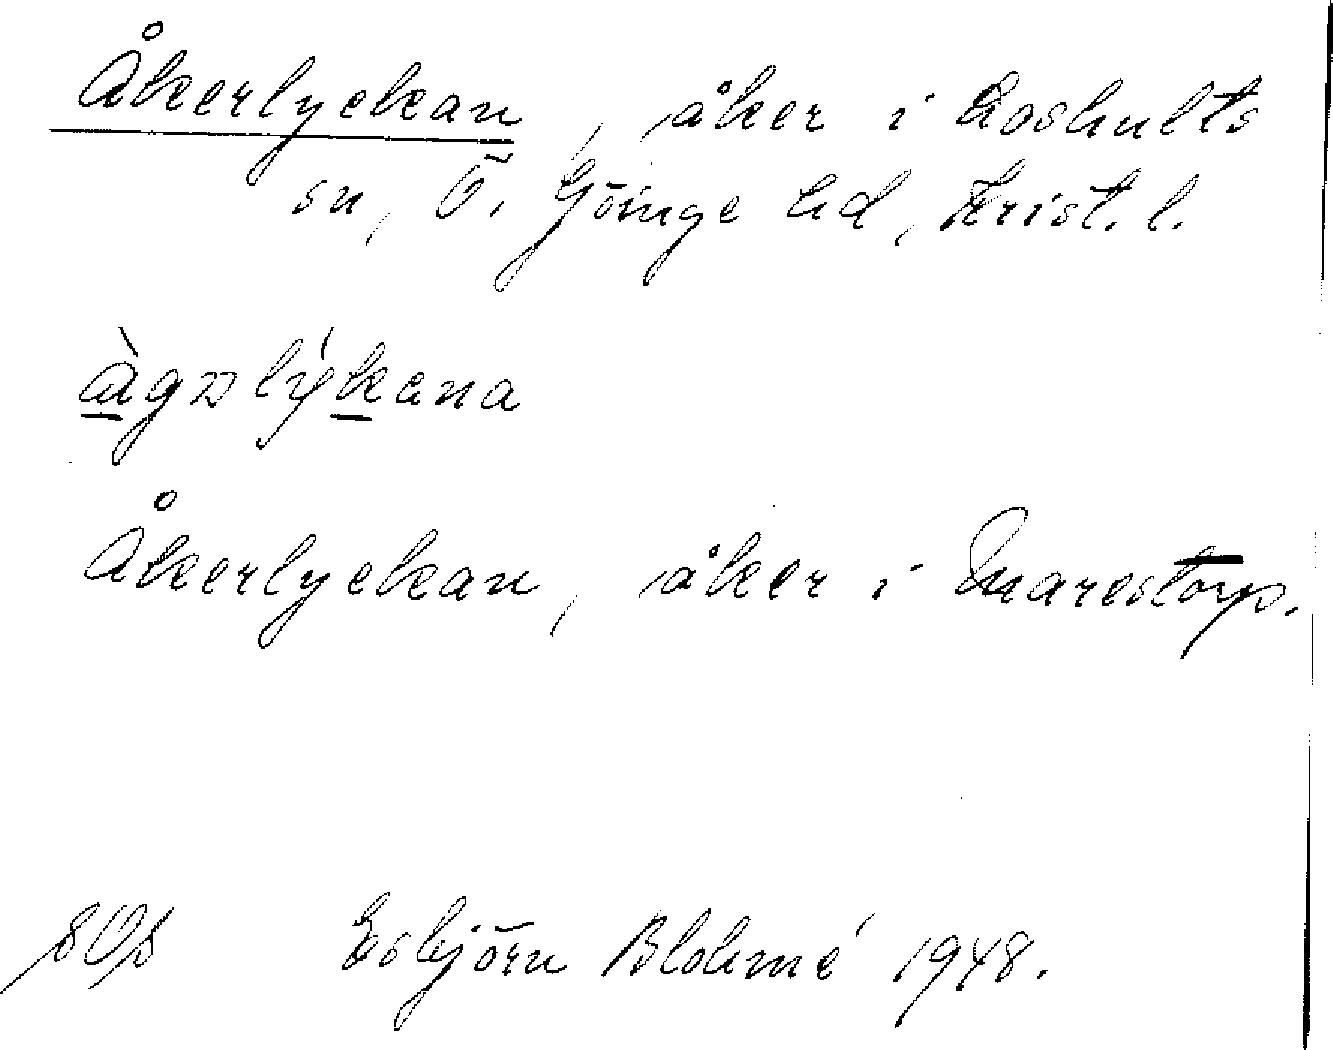 Åkerlyckan, åker i Loshults
sn, Ö. Göinge hd, Krist. l.
Åkerlyckan, åker i Snarestorp.
Esbjörn Blohmé 1948.